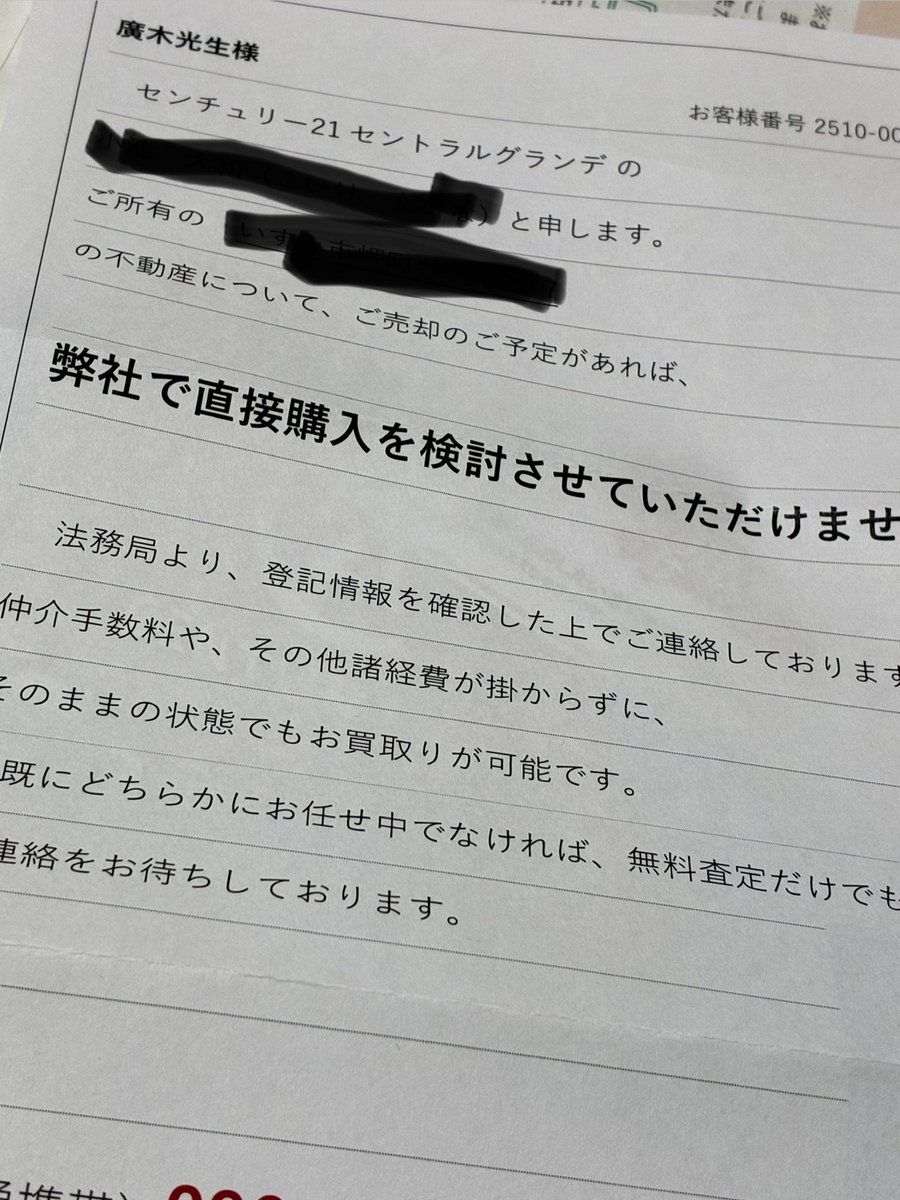 廣木光生様
お客様番号 2510-00
センチュリー21 セントラルグランデ の
）と申します。
ご所有の
の不動産について、ご売却のご予定があれば、
弊社で直接購入を検討させていただけませ
法務局より、登記情報を確認した上でご連絡しております
仲介手数料や、その他諸経費が掛からずに、
そのままの状態でもお買取りが可能です。
既にどちらかにお任せ中でなければ、無料査定だけでも
連絡をお待ちしております。